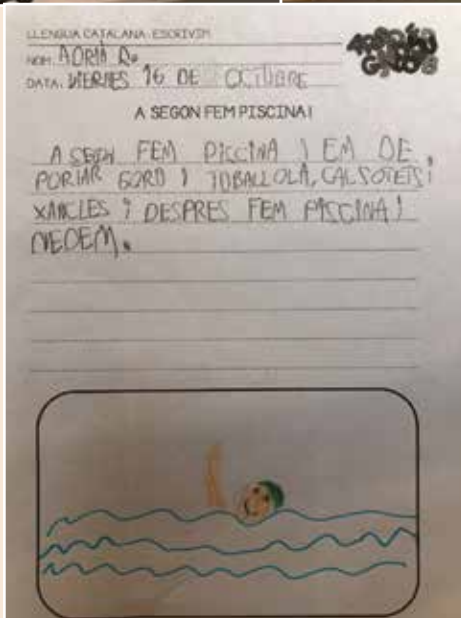 LLENGUA CATALANA: ESCRIVIM
NOM: ADRIÀ R.
DATA: VIERNES 16 DE OCTUBRE
A SEGON FEM PISCINA!
A SEGON FEM PISCINA I EM DE
PORTAR GORO I TOBALLOLA, CALSOTETS I
XANCLES I DESPRES FEM PISCINA I
NEDEM.